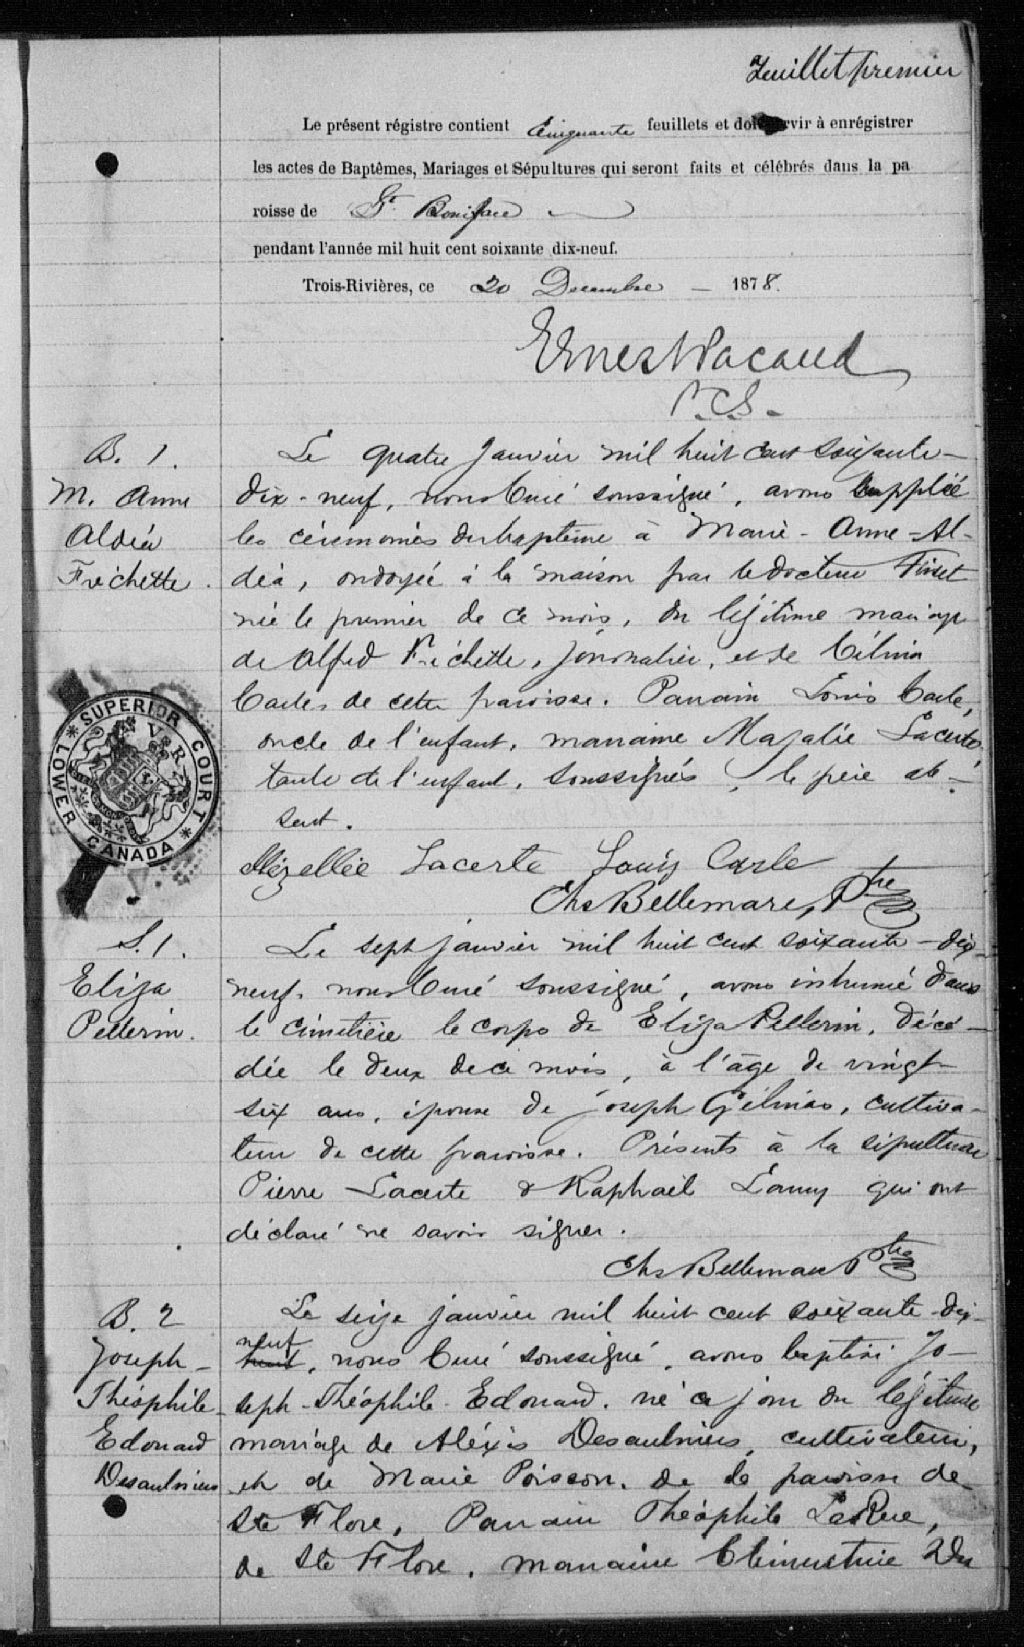 Feuillet premier
Le présent régistre contient Cinquante feuillets et doit servir à enrégistrer
les actes de Baptêmes, Mariages et Sépultures qui seront faits et célébrés dans la pa
roisse de St. Boniface
pendant l'année mil huit cent soixante dix-neuf.
Trois-Rivières, ce 20 Decembre — 1878.
Ernest Pacaud
P.C.S.
B. 1.
M. Anne
Aldéa
Fréchette.
Le quatre janvier mil huit cent soixante-
dix-neuf, nous Curé soussigné, avons suppléé
les cérémonies du baptême à Marie-Anne-Al-
déa, ondoyée à la maison par le docteur
née le premier de ce mois, du légitime mariage
de Alfred Fréchette, journalier, et de Célina
Carle, de cette paroisse. Parrain Louis Carle,
oncle de l'enfant, marraine Lacerte,
tante de l'enfant, soussignés, le père ab-
sent.
Lacerte Louis Carle
Chs Bellemare, Ptre
SUPERIOR COURT
LOWER CANADA
V R
S. 1.
Eliza
Pellerin.
Le sept janvier mil huit cent soixante-dix-
neuf, nous Curé soussigné, avons inhumé dans
le cimetière le corps de Eliza Pellerin, décé-
dée le deux de ce mois, à l'âge de vingt-
six ans, épouse de Joseph Gélinas, cultiva-
teur de cette paroisse. Présents à la sépulture
Pierre Lacerte & Raphaël Lamy qui ont
déclaré ne savoir signer.
Chs Bellemare Ptre
B. 2
Joseph-
Théophile
Edouard
Desaulniers
Le seize janvier mil huit cent soixante-dix-
neuf
huit, nous Curé soussigné, avons baptisé Jo-
seph-Théophile-Edouard, né ce jour du légitime
mariage de Aléxis Desaulniers, cultivateur,
et de Marie Poisson, de la paroisse de
Ste Flore, Parrain Théophile LaRue,
de Ste Flore, marraine